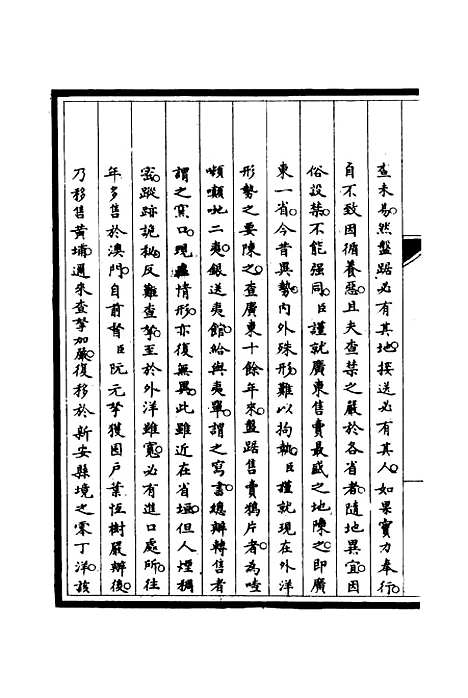 查未易然盤踞必有其地接送必有其人如果實力奉行
自不致因循養惡且夫查禁之嚴於各省者隨地異宜因
俗設禁不能强同臣謹就廣東售賣最盛之地陳之卽廣
東一省今昔異勢內外殊形難以拘執臣謹就現在外洋
形勢之要陳之查廣東十餘年來盤踞售賣鴉片者為𠸄
㘔𠺕吡二夷銀送夷館給與夷單謂之寫書總辦轉售者
謂之窯口現在情形亦復無異此雖近在省垣但人煙稠
密蹤跡詭秘反難查拏至於外洋雖寬必有進口處所往
年多售於澳門自前督臣阮元拏獲因戶葉恆樹嚴辦後
乃移售黃埔邇來查拏加嚴復移於新安縣境之零丁洋該